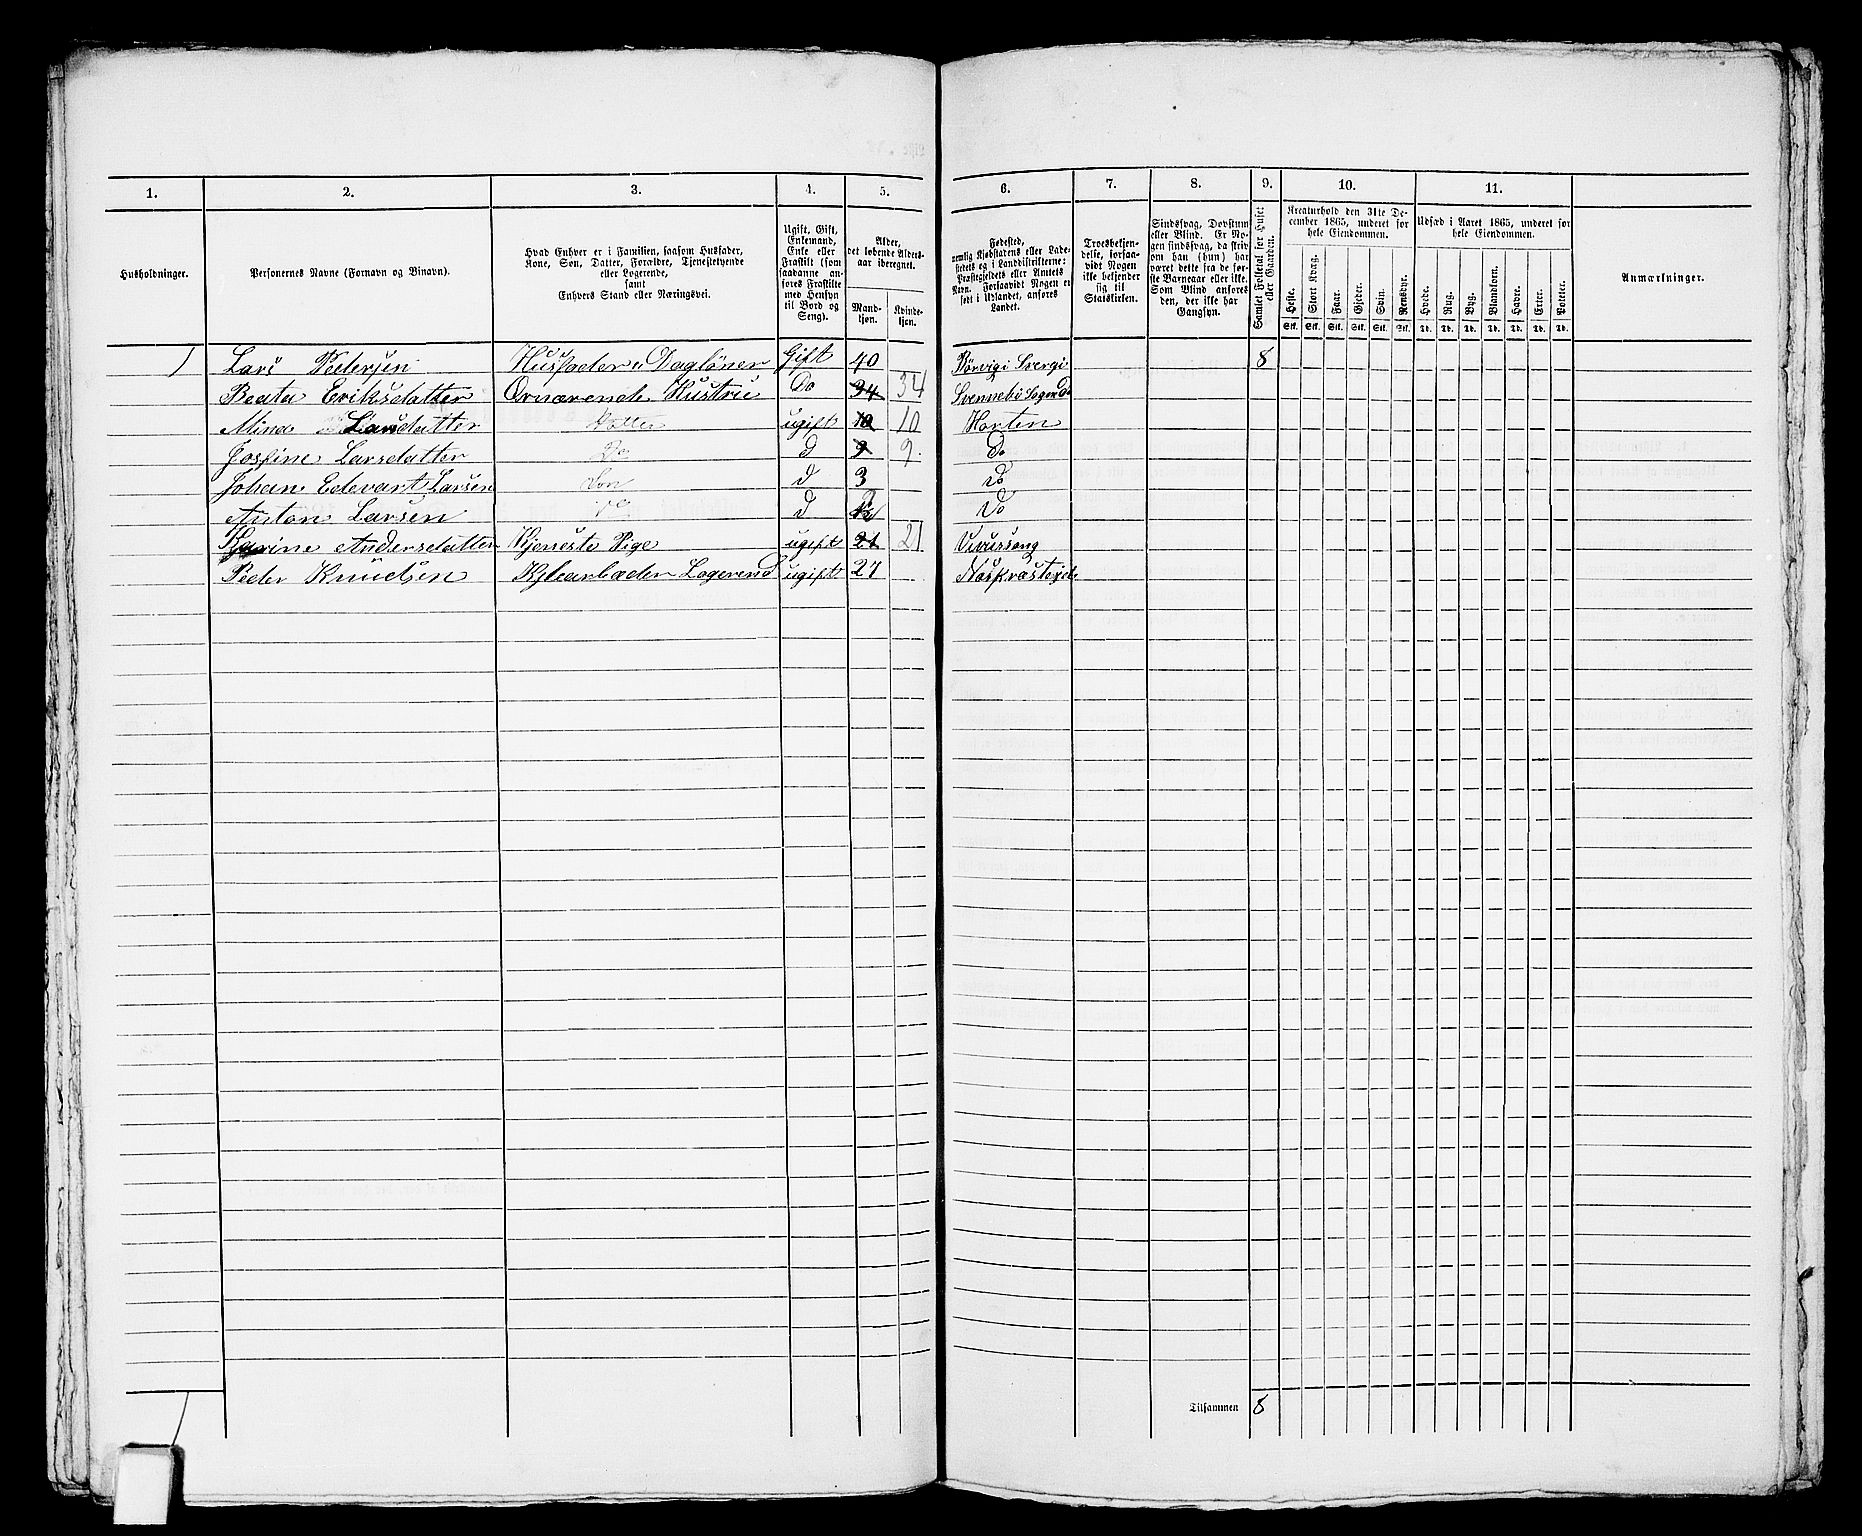 1. 2. 3. 4. 5. 6. 7. 8. 9. 10. 11.
Husholdninger.
Personernes Navne (Fornavn og Binavn).
Hvad Enhver er i Familien, saasom Husfader,
Kone, Søn, Datter, Forældre, Tjenestetyende
eller Logerende,
samt
Enhvers Stand eller Næringsvei.
Ugift, Gift,
Enkemand,
Enke eller
Fraskilt (som
saadanne an-
føres Fraskilte
med Hensyn
til Bord og
Seng).
Alder,
det løbende Alders-
aar iberegnet.
Mand-
kjøn.
Kvinde-
kjøn.
Fødested,
nemlig Kjøbstadens eller Lade-
stedets og i Landdistrikterne:
Præstegjeldets eller Amtets
Navn. Forsaavidt Nogen er
født i Udlandet, anføres
Landet.
Troesbekjen-
delse, forsaa-
vidt Nogen
ikke bekjender
sig til
Statskirken.
Sindssvag, Døvstum
eller Blind. Er No-
gen sindssvag, da skriv
om han (hun) har
været dette fra de før-
ste Barneaar eller ikke.
Som Blind anføres
den, der ikke har
Gangsyn.
Samlet Folketal for Huset
eller Gaarden.
Kreaturhold den 31te De-
cember 1865, underet for
hele Eiendommen.
Heste. Stort Kvæg. Faar. Gjeder. Svin. Rensdyr.
Stk. Stk. Stk. Stk. Stk. Stk.
Udsæd i Aaret 1865, underet for
hele Eiendommen.
Hvede. Rug. Byg. Blandkorn. Havre. Erter. Poteter.
Td. Td. Td. Td. Td. Td. Td.
Anmærkninger.
1 Lars Pedersen Husfader Dagløner Gift 40 8
Beata Eriksdatter Hustru Do 34 34
Mina Larsdatter Datter ugift 10 10 Horten
Josfine Larsdatter Do d 9 9. Do
Johan Edevart Larsen Son d 3 Do
Anton Larsen Do d Do
Karine Andersdatter Tjeneste Pige ugift 21 21
Peder Knudsen Logerend ugift 27
Tilsammen 8